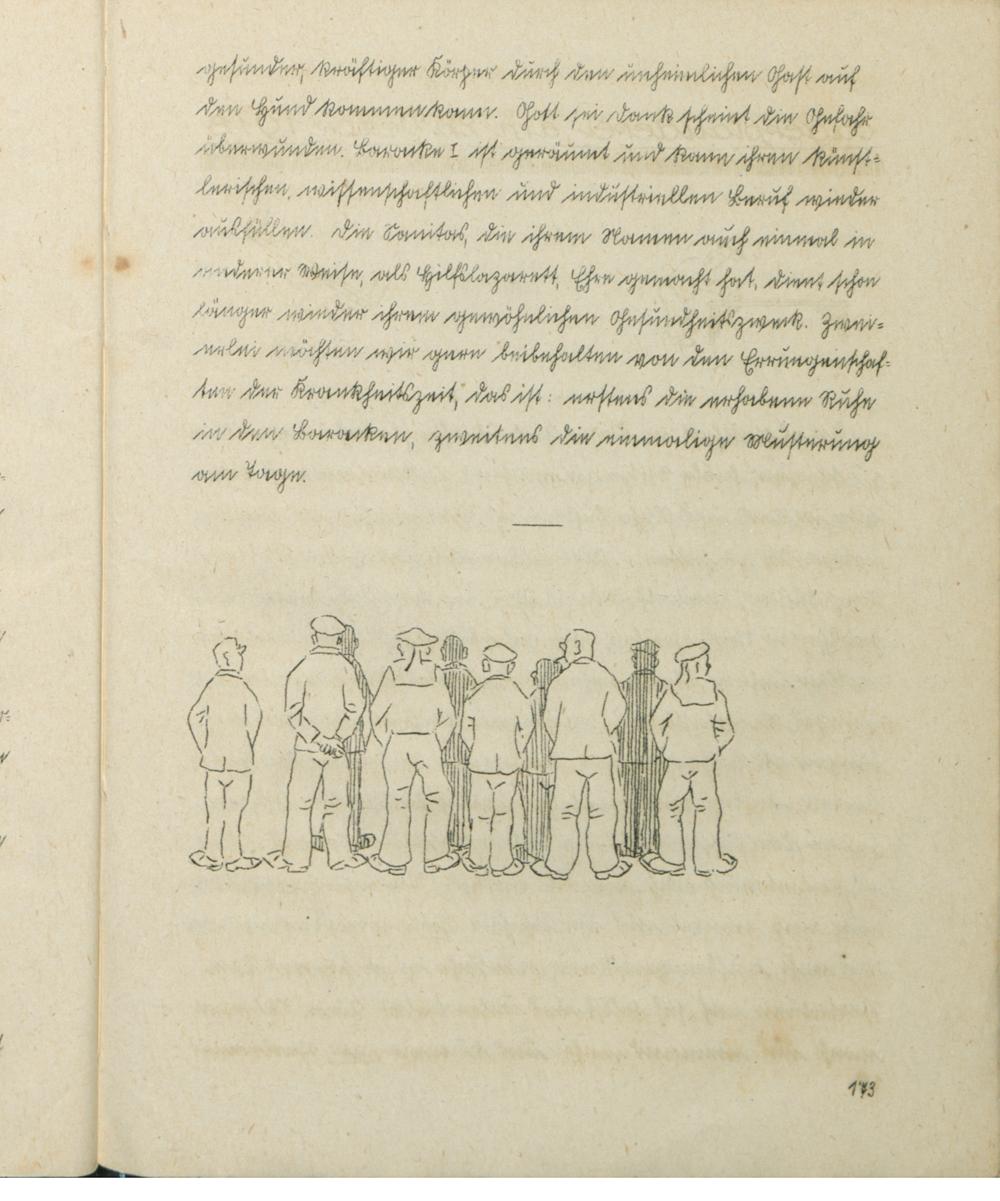 gesunder, kräftiger Körper durch den unheimlichen Gast auf
den Hund kommen kann. Gott sei Dank scheint die Gefahr
überwunden. Baracke I ist geräumt und kann ihren künst-
lerischen, wissenschaftlichen und industriellen Beruf wieder
ausfüllen. Die Sanitas, die ihrem Namen auch einmal in
anderer Weise, als Hilfslazarett, Ehre gemacht hat, dient schon
länger wieder ihrem gewöhnlichen Gesundheitszweck. Zwei-
erlei möchten wir gern beibehalten von den Errungenschaf-
ten der Krankheitszeit, das ist: erstens die erhabene Ruhe
in den Baracken, zweitens die einmalige Musterung
am Tage.
173